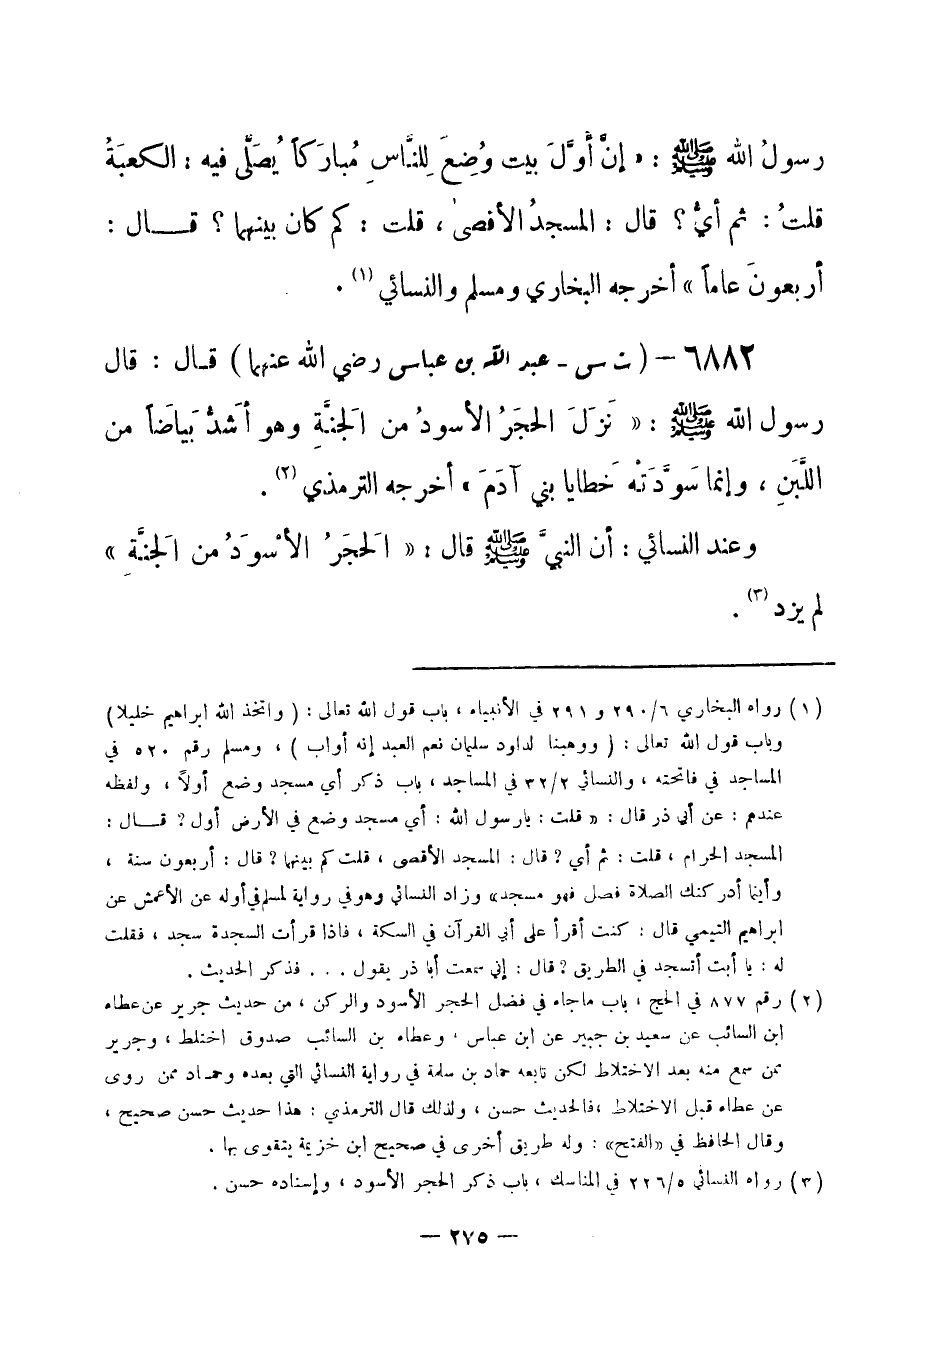 رسولُ الله ﷺ : « إنَّ أوَّلَ بيت وُضِعَ لِلنَّاسِ مُبارَكاً يُصَلَّى فيه : الكعبَةُ
قلتُ : ثم أيُّ ؟ قال : المسجدُ الأقصى ، قلت : كم كان بينهما ؟ قـــال :
أربعونَ عاماً » أخرجه البخاري ومسلم والنسائي (١) .
٦٨٨٢ – ( ت س - عبد الله بن عباس رضي الله عنهما ) قـال : قال
رسول الله ﷺ : « نَزَلَ الحجَرُ الأسودُ من الجنَّةِ وهو أشَدُّ بَياضَاً من
اللَّبَنِ ، وإنما سَوَّدَتْه خَطايا بني آدَمَ » أخرجه الترمذي (٢) .
وعند النسائي : أن النبيَّ ﷺ قال : « الحجَرُ الأسْوَدُ من الجنَّةِ »
لم يزد (٣) .
(١) رواه البخاري ٦/٢٩٠ و ٢٩١ في الأنبياء ، باب قول الله تعالى : ( واتخذ الله ابراهيم خليلا)
وباب قول الله تعالى : ( ووهبنا لداود سليمان نعم العبد إنه أواب ) ، ومسلم رقم ٥٢٠ في
المساجد في فاتحته ، والنسائي ٢/٣٢ في المساجد ، باب ذكر أي مسجد وضع أولاً ، ولفظه
عندهم : عن أبي ذر قال : « قلت : يارسول الله : أي مسجد وضع في الأرض أول ؟ قـــال :
المسجد الحرام ، قلت : ثم أي ؟ قال : المسجد الأقصى ، قلت كم بينهما ؟ قال : أربعون سنة ،
وأينما أدركتك الصلاة فصل فهو مسجد» وزاد النسائي وهو في رواية لمسلم في أوله عن الأعمش عن
ابراهيم التيمي قال : كنت أقرأ على أبي القرآن في السكة ، فاذا قرأت السجدة سجد ، فقلت
له : يا أبت أتسجد في الطريق ؟ قال : إني سمعت أبا ذر يقول . . . فذكر الحديث .
(٢) رقم ٨٧٧ في الحج ، باب ماجاء في فضل الحجر الأسود والركن ، من حديث جرير عن عطاء
ابن السائب عن سعيد بن جبير عن ابن عباس ، وعطاء بن السائب صدوق اختلط ، وجرير
ممن سمع منه بعد الاختلاط لكن تابعه حماد بن سلمة في رواية النسائي التي بعده وحمـاد ممن روى
عن عطاء قبل الاختلاط ،فالحديث حسن ، ولذلك قال الترمذي : هذا حديث حسن صحيح ،
وقال الحافظ في «الفتح» : وله طريق أخرى في صحيح ابن خزيمة يتقوى بها .
(٣) رواه النسائي ٥/٢٢٦ في المناسك ، باب ذكر الحجر الأسود ، وإسناده حسن .
— ٢٧٥ —